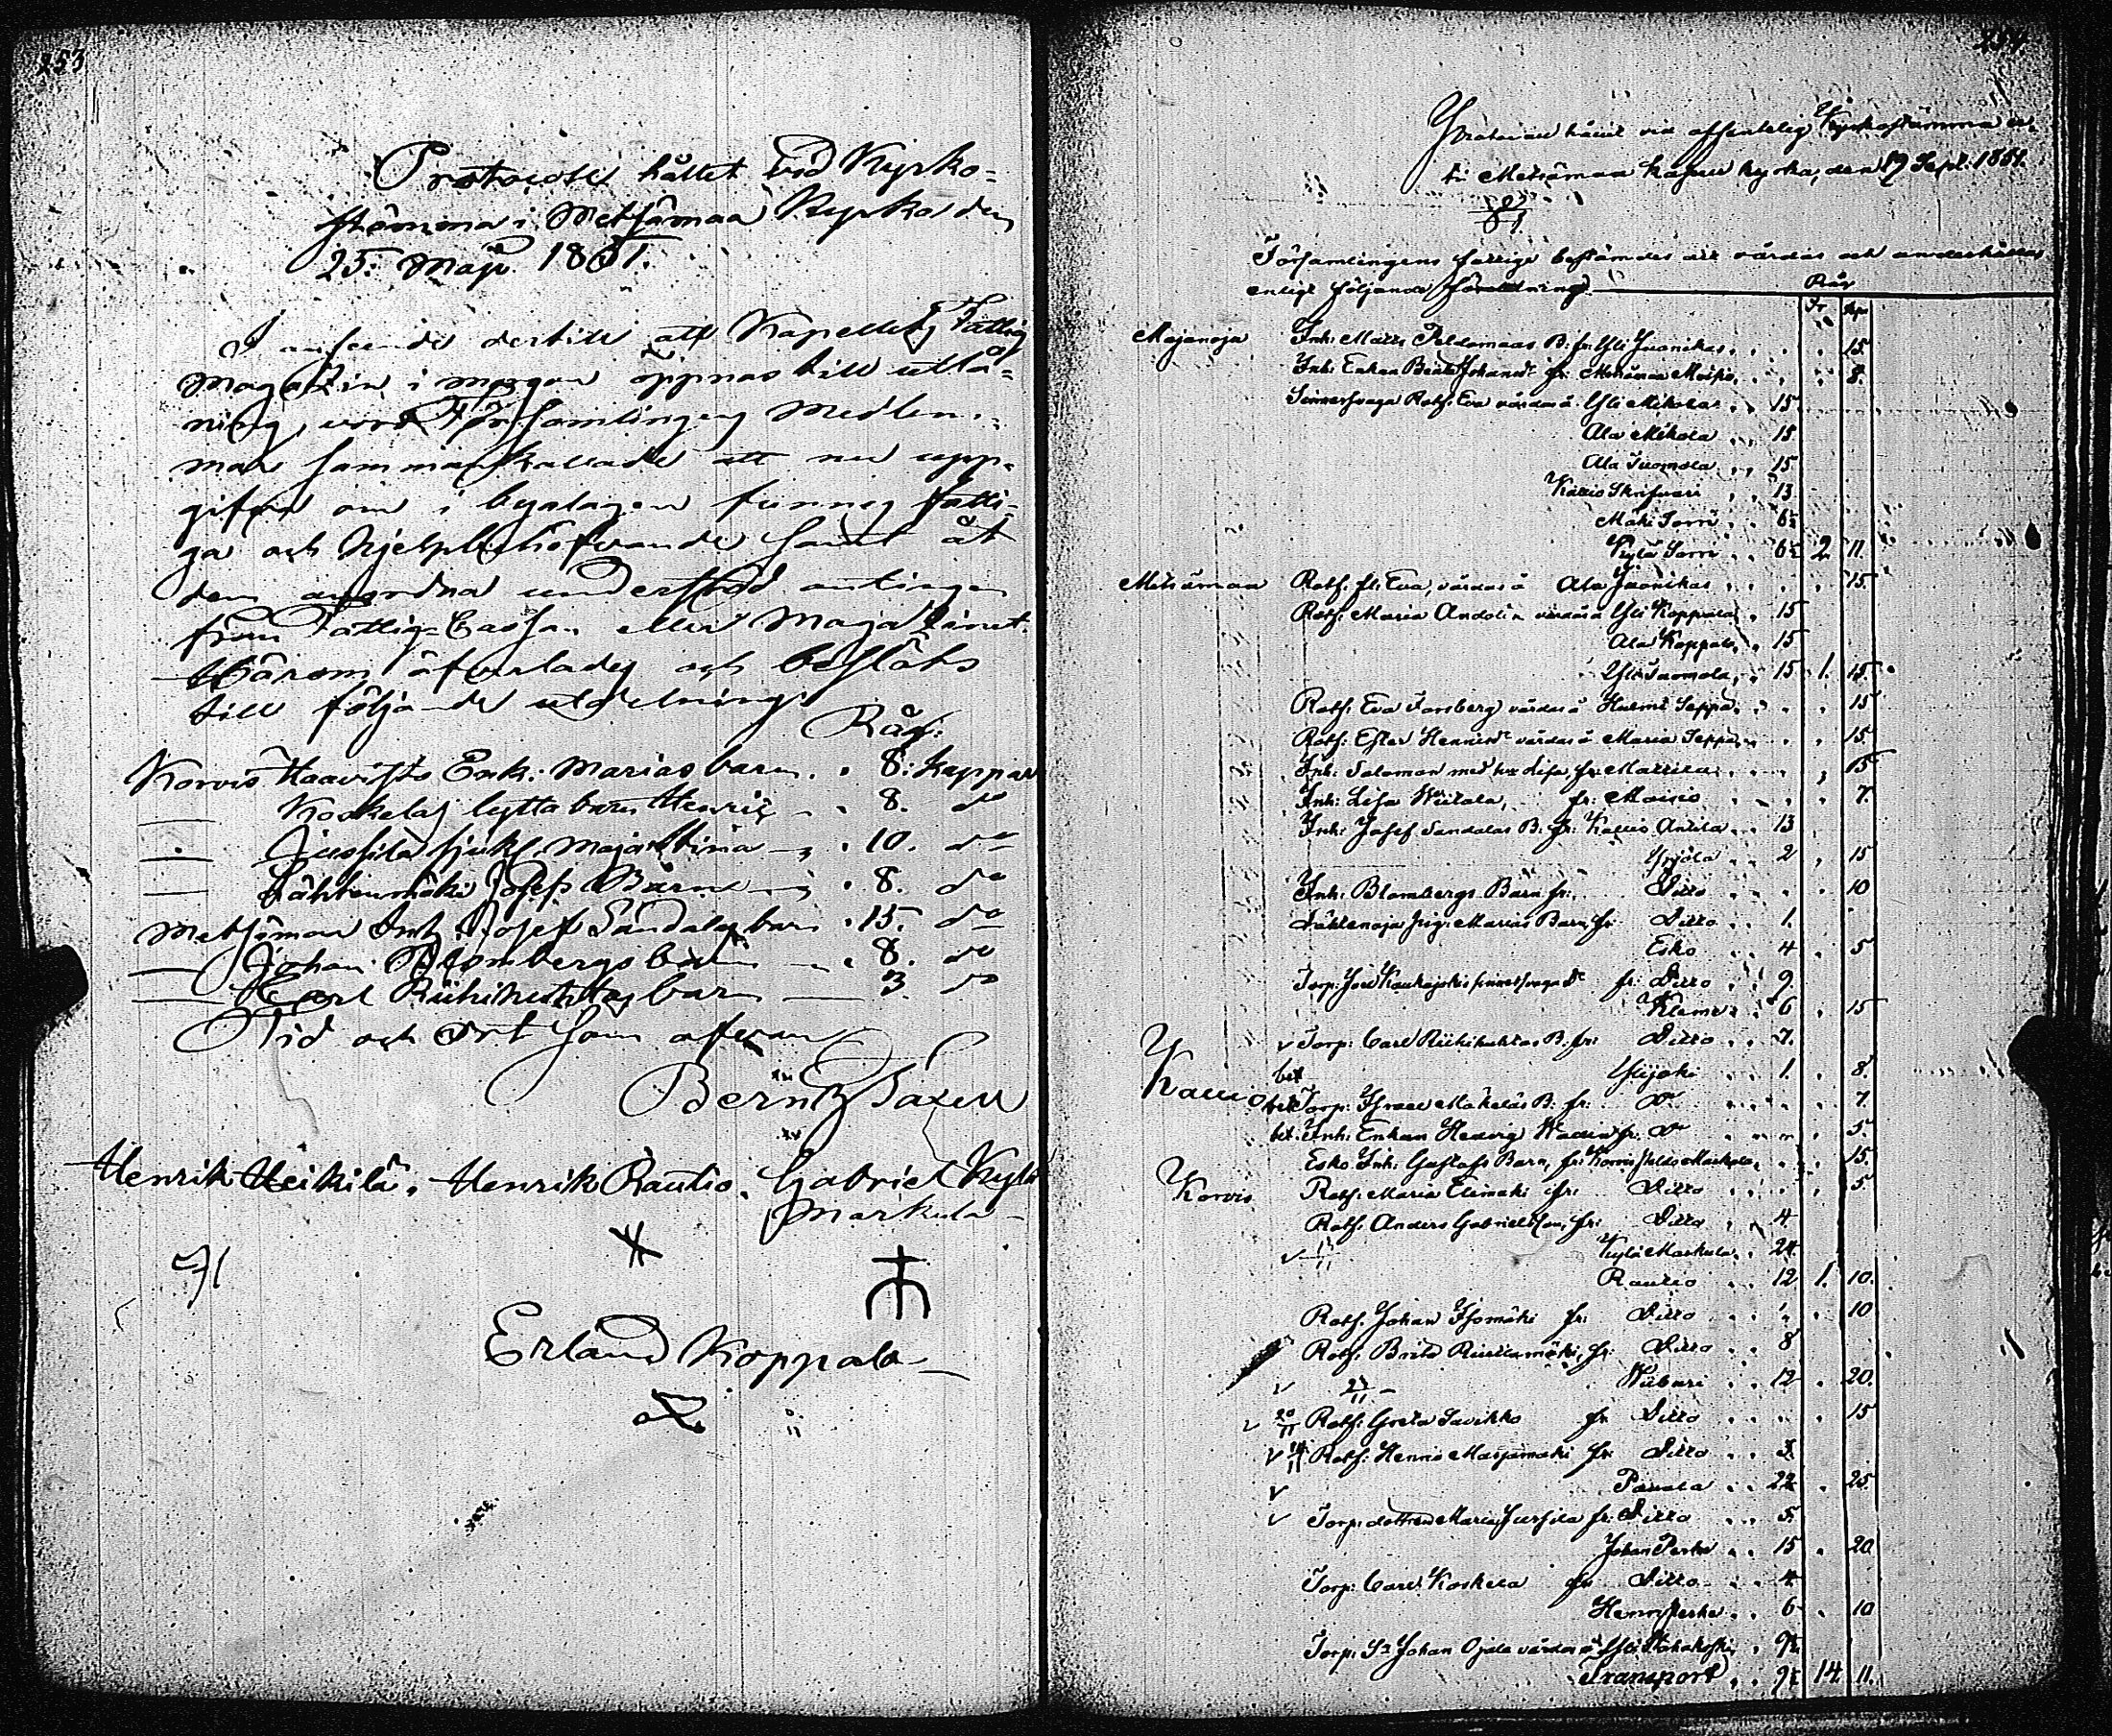 253
Protocoll hållet vid Kyrko=
stämma i Metsämaa Kyrka den
25. Maji 1851.
I anseende dertill att Kapellets Fattig
Magazin i morgon öppnas till utlå=
ning, voro Församlingens Medlem=
mar sammankallade att nu upp=
gifva om i byalagen funnes fatti=
ga och hjelpbehöfvande samt åt
dem anordna understöd antingen
från Fattig=Cassan eller Magazinet.
Härom öfverlades och beslöts
till följande utdelning:
Råg:
Korvis Haavisto Enk. Marias barn . 8: kappar
— Koskelas lytta barn Henric — . 8. do
— Jussila sjukl. Maja Stina — . 10. do
— Lähteenmäki Josefs Barn — . 8. do
Metsämaa Inh. Josef Sandalas barn . 15. do
— Johan Blombergs barn — . 8. do
— Carl Riihihuhtas barn — 3. do
Tid och Ort som ofvan
Bernh Saxell
Henrik Heikilä. Henrik Rautio. Gabriel Kylä
Markula
Erland Koppala
254
Protocoll hållet vid offentelig Kyrkostämma
i Metsämaa Kapell kyrka, den Sept. 1851.
Församlingens fattige bestämdes att vårdas och underhållas
enligt följande fördelning
Råg
Tr Kpr
Majanoja Inh: Matts Peldomaas B. fr. Yli Juonikas . . . 15.
Inh: Enkan Beata Johansdr fr. Metsämaa Moisio . . . 8.
Sinnessvaga Rotf. Eva vårdas å Yli Mikola . . 15
Ala Mikola . . 15
Ala Tuomola . . 15
Kallio Skrifvari . . 13
Mäki Sorri . . 6½
Kylä Sorri . . 6½ 2 11.
Metsämaa Rotf. fl. Eva, vårdas å Ala Juonikas . . . 15.
Rotf. Maria Andolin vårdas å Yli Koppala . 15
Ala Koppala . . 15
Yli Tuomola . . 15 1. 15.
Rotf: Eva Forsberg vårdas å Hulmi Seppä . . . 15
Rotf: Ester Henricsdr vårdas å Maria Seppä . . . 15.
Inh: Salomon med hu Lisa, fr. Mattila . . . 15
Inh: Lisa Wiitala, fr: Moisio . . . 7.
Inh: Josef Sandalas B. fr: Kallio Anttila . . 13
Yrjölä . . 2 . 15
Inh. Blombergs Barn fr. Ditto . . . 10
Lähtenoja pig. Marias Barn, fr Ditto . . 1.
Esko . . 4 . 5
Torp: Joel Kaukajokis sinnessvaga dr fr: Ditto . . 9.
Klemi . . 6 . 15
Kallio v Torp: Carl Riihihuhtas B. fr: Ditto . . 7.
bet Ylijoki . . 1. . 8.
bet Torp: Israel Mäkeläs B. fr: do . . . 7.
bet. Inh: Enkan Hedvig Wallin fr. do . . . 5.
Esko Inh: Gustafs Barn, fr: Korvis Peldo Markula . . . 15.
Korvis Rotf: Maria Elimäki fr: Ditto . . . 5
Rotf. Anders Gabrielsson, fr: Ditto . . 4
v Kylä Markula . . 24.
Rautio . . 12 1. 10.
Rotf. Johan Isomäki fr: Ditto . . . 10
Rotf: Brita Rietiamäki, fr: Ditto . . 8
v Wiibari . . 12 . 20.
v 20/11 Rotf: Greta Savikko fr Ditto . . . 15
v Rotf: Henric Marjamäki fr: Ditto . . 3.
v Panula . . 22 . 25.
v Torp: dottren Maria Jussila fr. Ditto . . 5
Johan Perho . . 15 . 20
Torp: Carl Koskela fr Ditto . . 4
Henric Perho . . 6 . 10
Torp. Sn Johan Ojala vårdas å Yli . 9½
Transport . . 9½ 14 11.